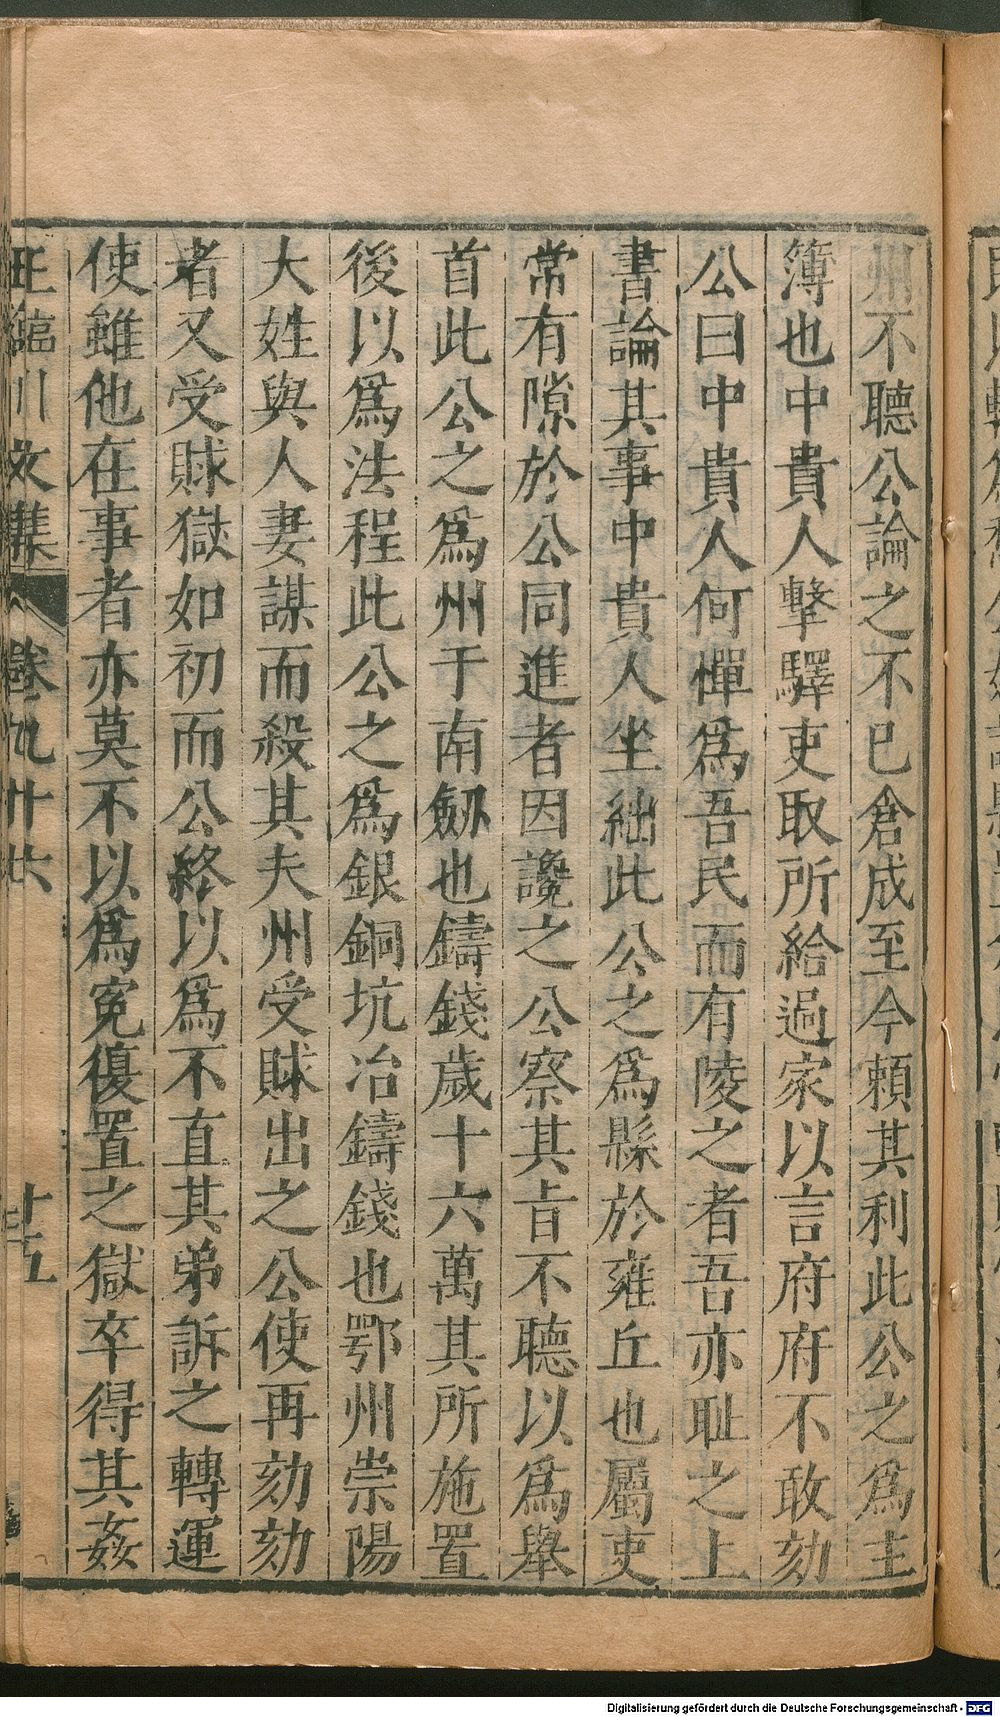 州不聽公論之不已倉成至今頼其利此公之爲主
簿也中貴人擊驛吏取所給過家以言府府不敢劾
公曰中貴人何憚爲吾民而有陵之者吾亦耻之上
書論其事中貴人坐絀此公之爲縣於雍丘也屬吏
常有隙於公同進者因讒之公察其旨不聽以爲舉
首此公之爲州于南劒也鑄錢歲十六萬其所施置
後以爲法程此公之爲銀銅坑冶鑄錢也鄂州崇陽
大姓與人妻謀而殺其夫州受賕出之公使再劾劾
者又受賕獄如初而公終以爲不直其弟訴之轉運
使雖他在事者亦莫不以爲寃復置之獄卒得其姦
王臨川文集 卷九十六 十五
Digitalisierung gefördert durch die Deutsche Forschungsgemeinschaft - DFG